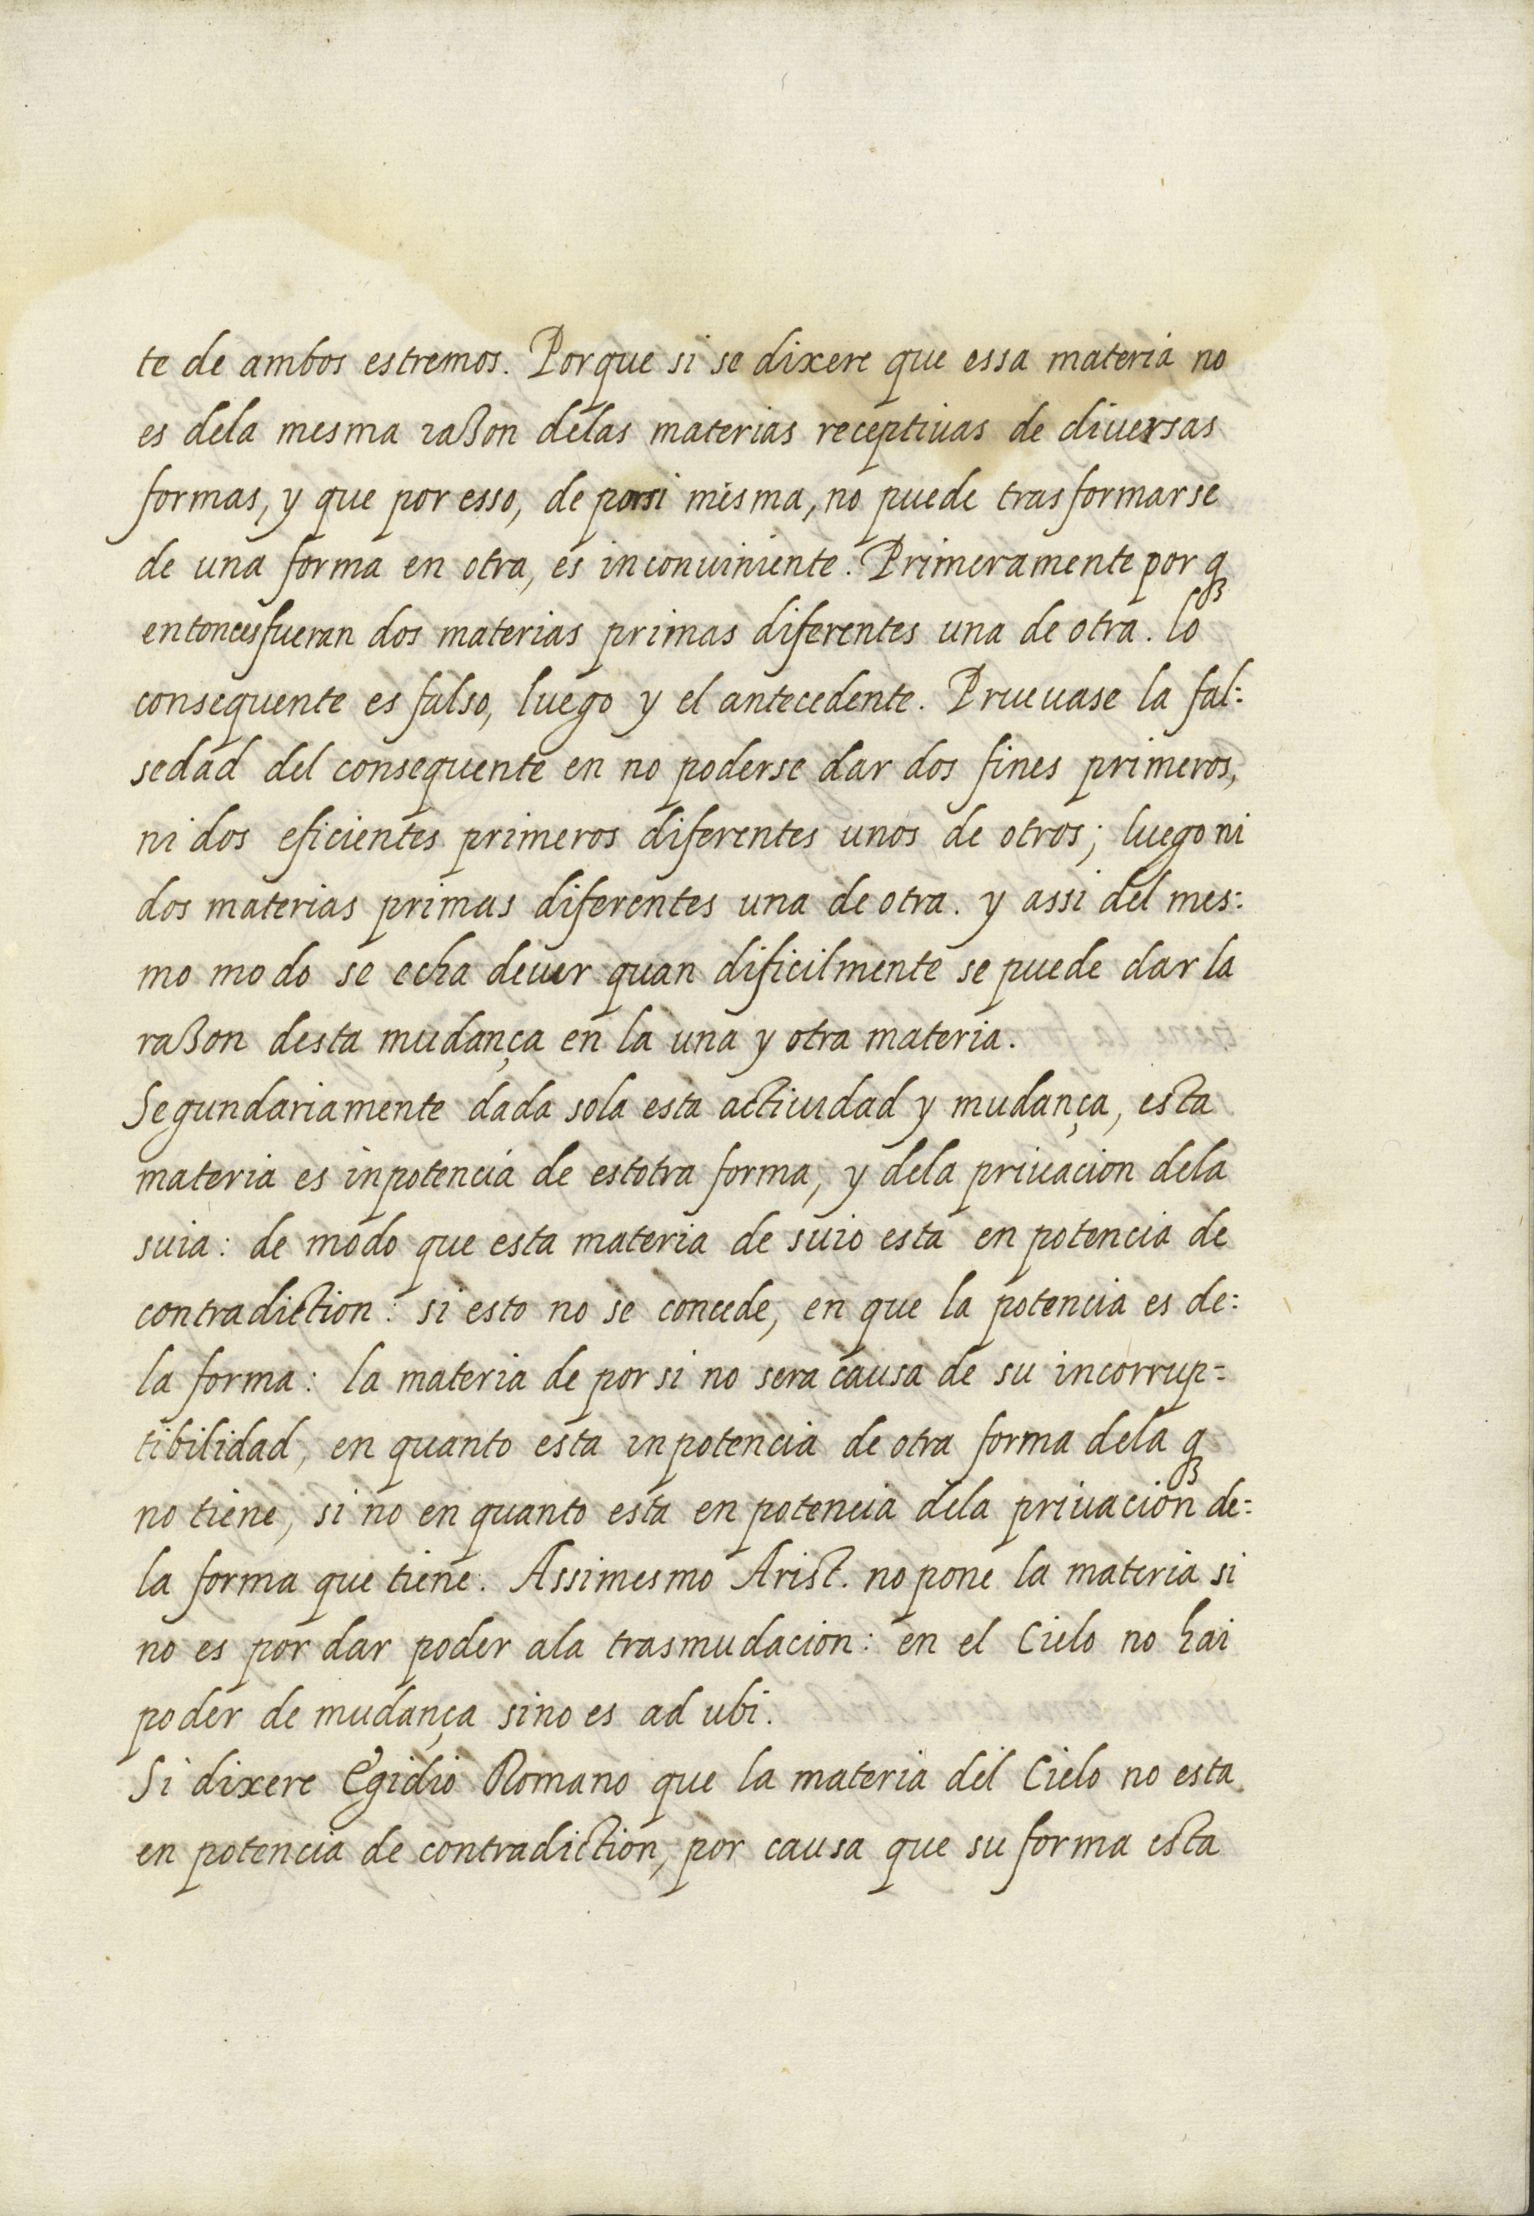 te de ambos estremos. Porque si se dixere que essa materia no
es dela mesma razon delas materias receptiuas de diuersas
formas, y que por esso, de porsi mesma, no puede trasformarse
de una forma en otra, es inconuiniente. Primeramente por q̃
entonces fueran dos materias primas diferentes una de otra. lo
consequente es falso, luego y el antecedente. Prueuase la fal:
sedad del consequente en no poderse dar dos fines primeros,
ni dos eficientes primeros diferentes unos de otros; luego ni
dos materias primas diferentes una de otra. y assi del mes:
mo modo se echa deuer quan dificilmente se puede dar la
razon desta mudança en la una y otra materia.
Segundariamente dada sola esta actiuidad y mudança, esta
materia es inpotencia de estotra forma, y dela priuacion dela
suia: de modo que esta materia de suio esta en potencia de
contradiction: si esto no se concede, en que la potencia es de:
la forma: la materia de por si no sera causa de su incorrup=
tibilidad, en quanto esta inpotencia de otra forma dela q̃
no tiene, si no en quanto esta en potencia dela priuacion de:
la forma que tiene. Assimesmo Arist. no pone la materia si
no es por dar poder ala trasmudacion: en el Cielo no hai
poder de mudança sino es ad ubi.
Si dixere Egidio Romano que la materia del Cielo no esta
en potencia de contradiction, por causa que su forma esta